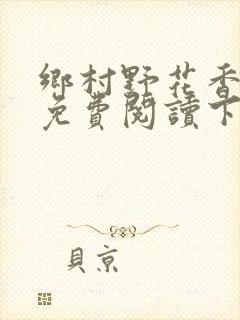 鄉村野花香
免費閱讀下
貝京